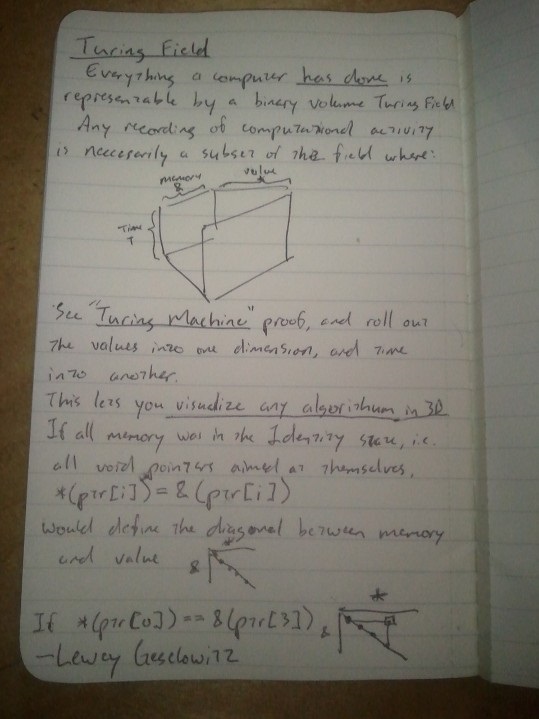 Turing Field
Everything a computer has done is
representable by a binary volume Turing Field
Any recording of computational activity
is neccesarily a subset of this field where:
memory
&
value
*
Time
T
See "Turing Machine" proof, and roll out
the values into one dimension, and time
into another.
This lets you visualize any algorithum in 3D
If all memory was in the Identity state, i.e.
all void pointers aimed at themselves,
*(ptr[i]) = &(ptr[i])
would define the diagonal between memory
and value
*
&
If *(ptr[0]) == &(ptr[3])
*
&
—Lewey Geselowitz